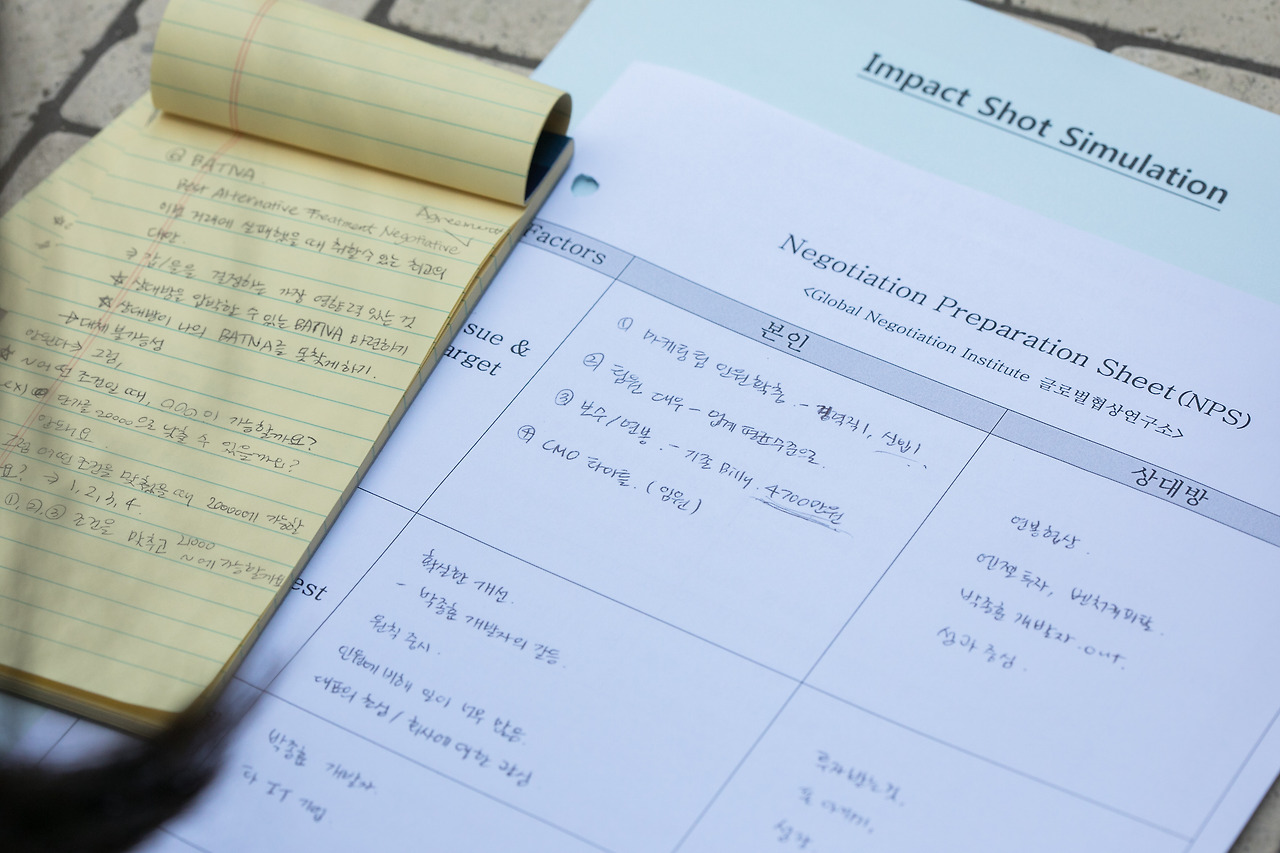 @ BATNA
Best Alternative Treatment Negotiative
Agreement
이번 거래에 실패했을 때 취할 수 있는 최고의
대안.
→ 갑/을을 결정하는 가장 영향력 있는 것
☆ 상대방을 압박할 수 있는 BATNA 마련하기
☆ 상대방이 나의 BATNA를 못찾게하기.
→ 대체 불가능성
안된다 > 그럼,
어떤 조건일 때, 000이 가능할까요?
ex) 단가를 20000으로 낮출 수 있을까요?
안돼요
그럼 어떤 조건을 맞췄을 때 20000에 가능할
까요? → 1, 2, 3, 4.
①, ②, ③ 조건을 맞추고 21000
~에 가능할까요
Impact Shot Simulation
Negotiation Preparation Sheet(NPS)
<Global Negotiation Institute 글로벌협상연구소>
Factors
본인
상대방
sue &
arget
① 마케팅팀 인원확충. - 경력직1, 신입1
② 팀원 대우 - 업계 평균수준으로.
③ 보수/연봉. - 기존 Billy. 4700만원
④ CMO 타이틀. (임원)
연봉협상.
엔젤투자, 벤처캐피탈.
박종훈 개발자 out.
성과 중심.
est
확실한 개선.
- 박종훈 개발자의 갈등.
원칙 중시.
인원에 비해 일이 너무 많음.
대표의 초심 / 회사에 대한 관심
박종훈 개발자.
타 IT 기업
투자받는것.